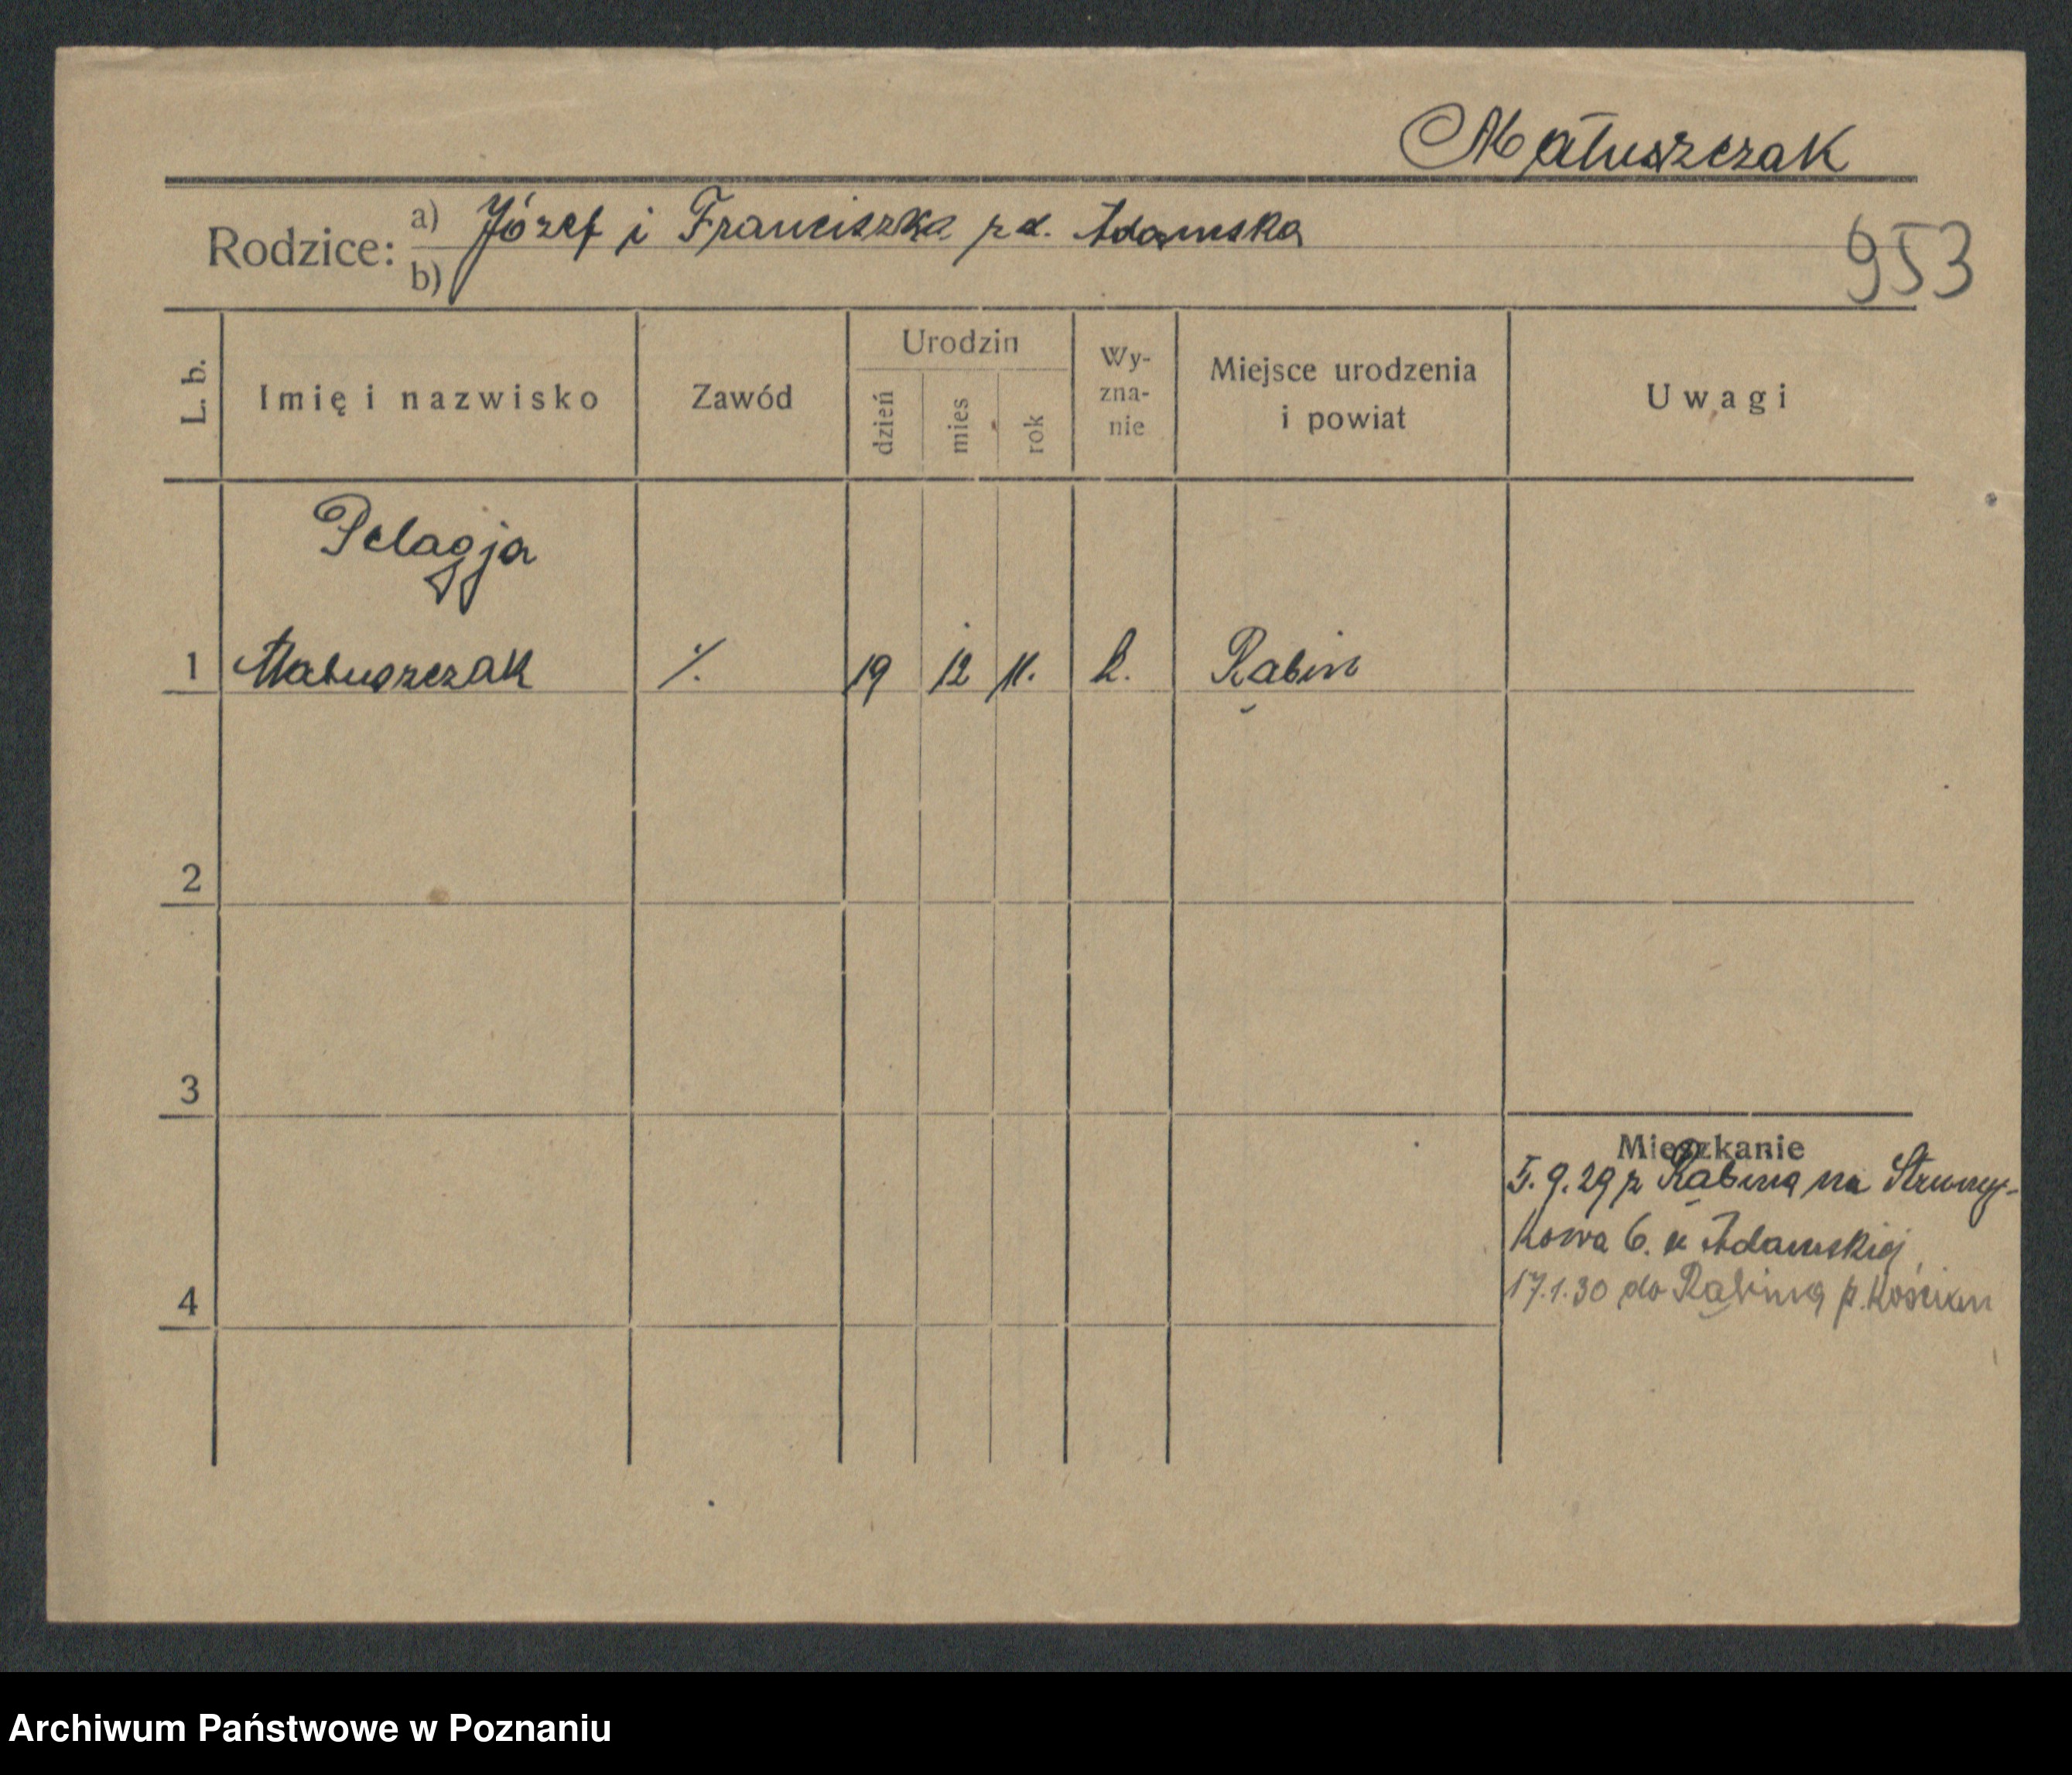 Matuszczak
Rodzice: a) Józef i Franciszka zd. Adamska
b)
953
L. b.
Imię i nazwisko
Zawód
Urodzin
dzień
mies
rok
Wy-
zna-
nie
Miejsce urodzenia
i powiat
Uwagi
Pelagja
1 Matuszczak ·/. 19 12 11. k. Rąbin
2
3
4
Mieszkanie
5.9.29 z Rąbina na Strumy-
kowa 6. u Adamskiej
17.1.30 do Rąbina p. Kościan
Archiwum Państwowe w Poznaniu